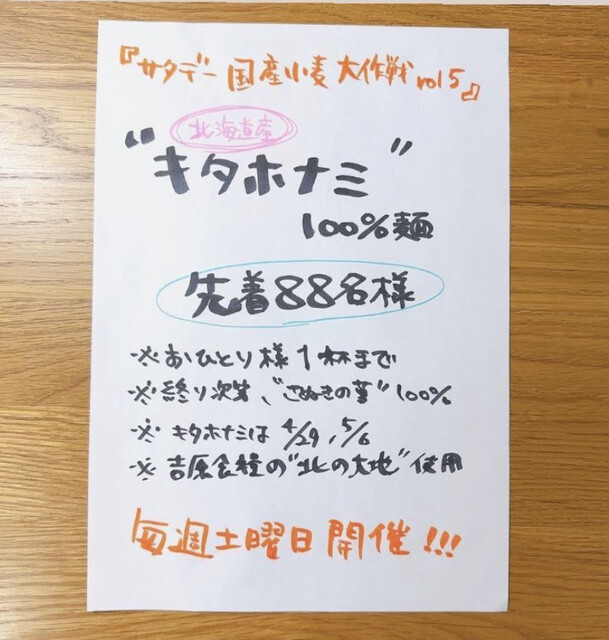 『サタデー国産小麦大作戦vol5』
北海道産
"キタホナミ"
100%麺
先着88名様
※おひとり様1杯まで
※終り次第、"さぬきの夢"100%
※キタホナミは4/29、5/6
※吉原食糧の"北の大地"使用
毎週土曜日開催!!!